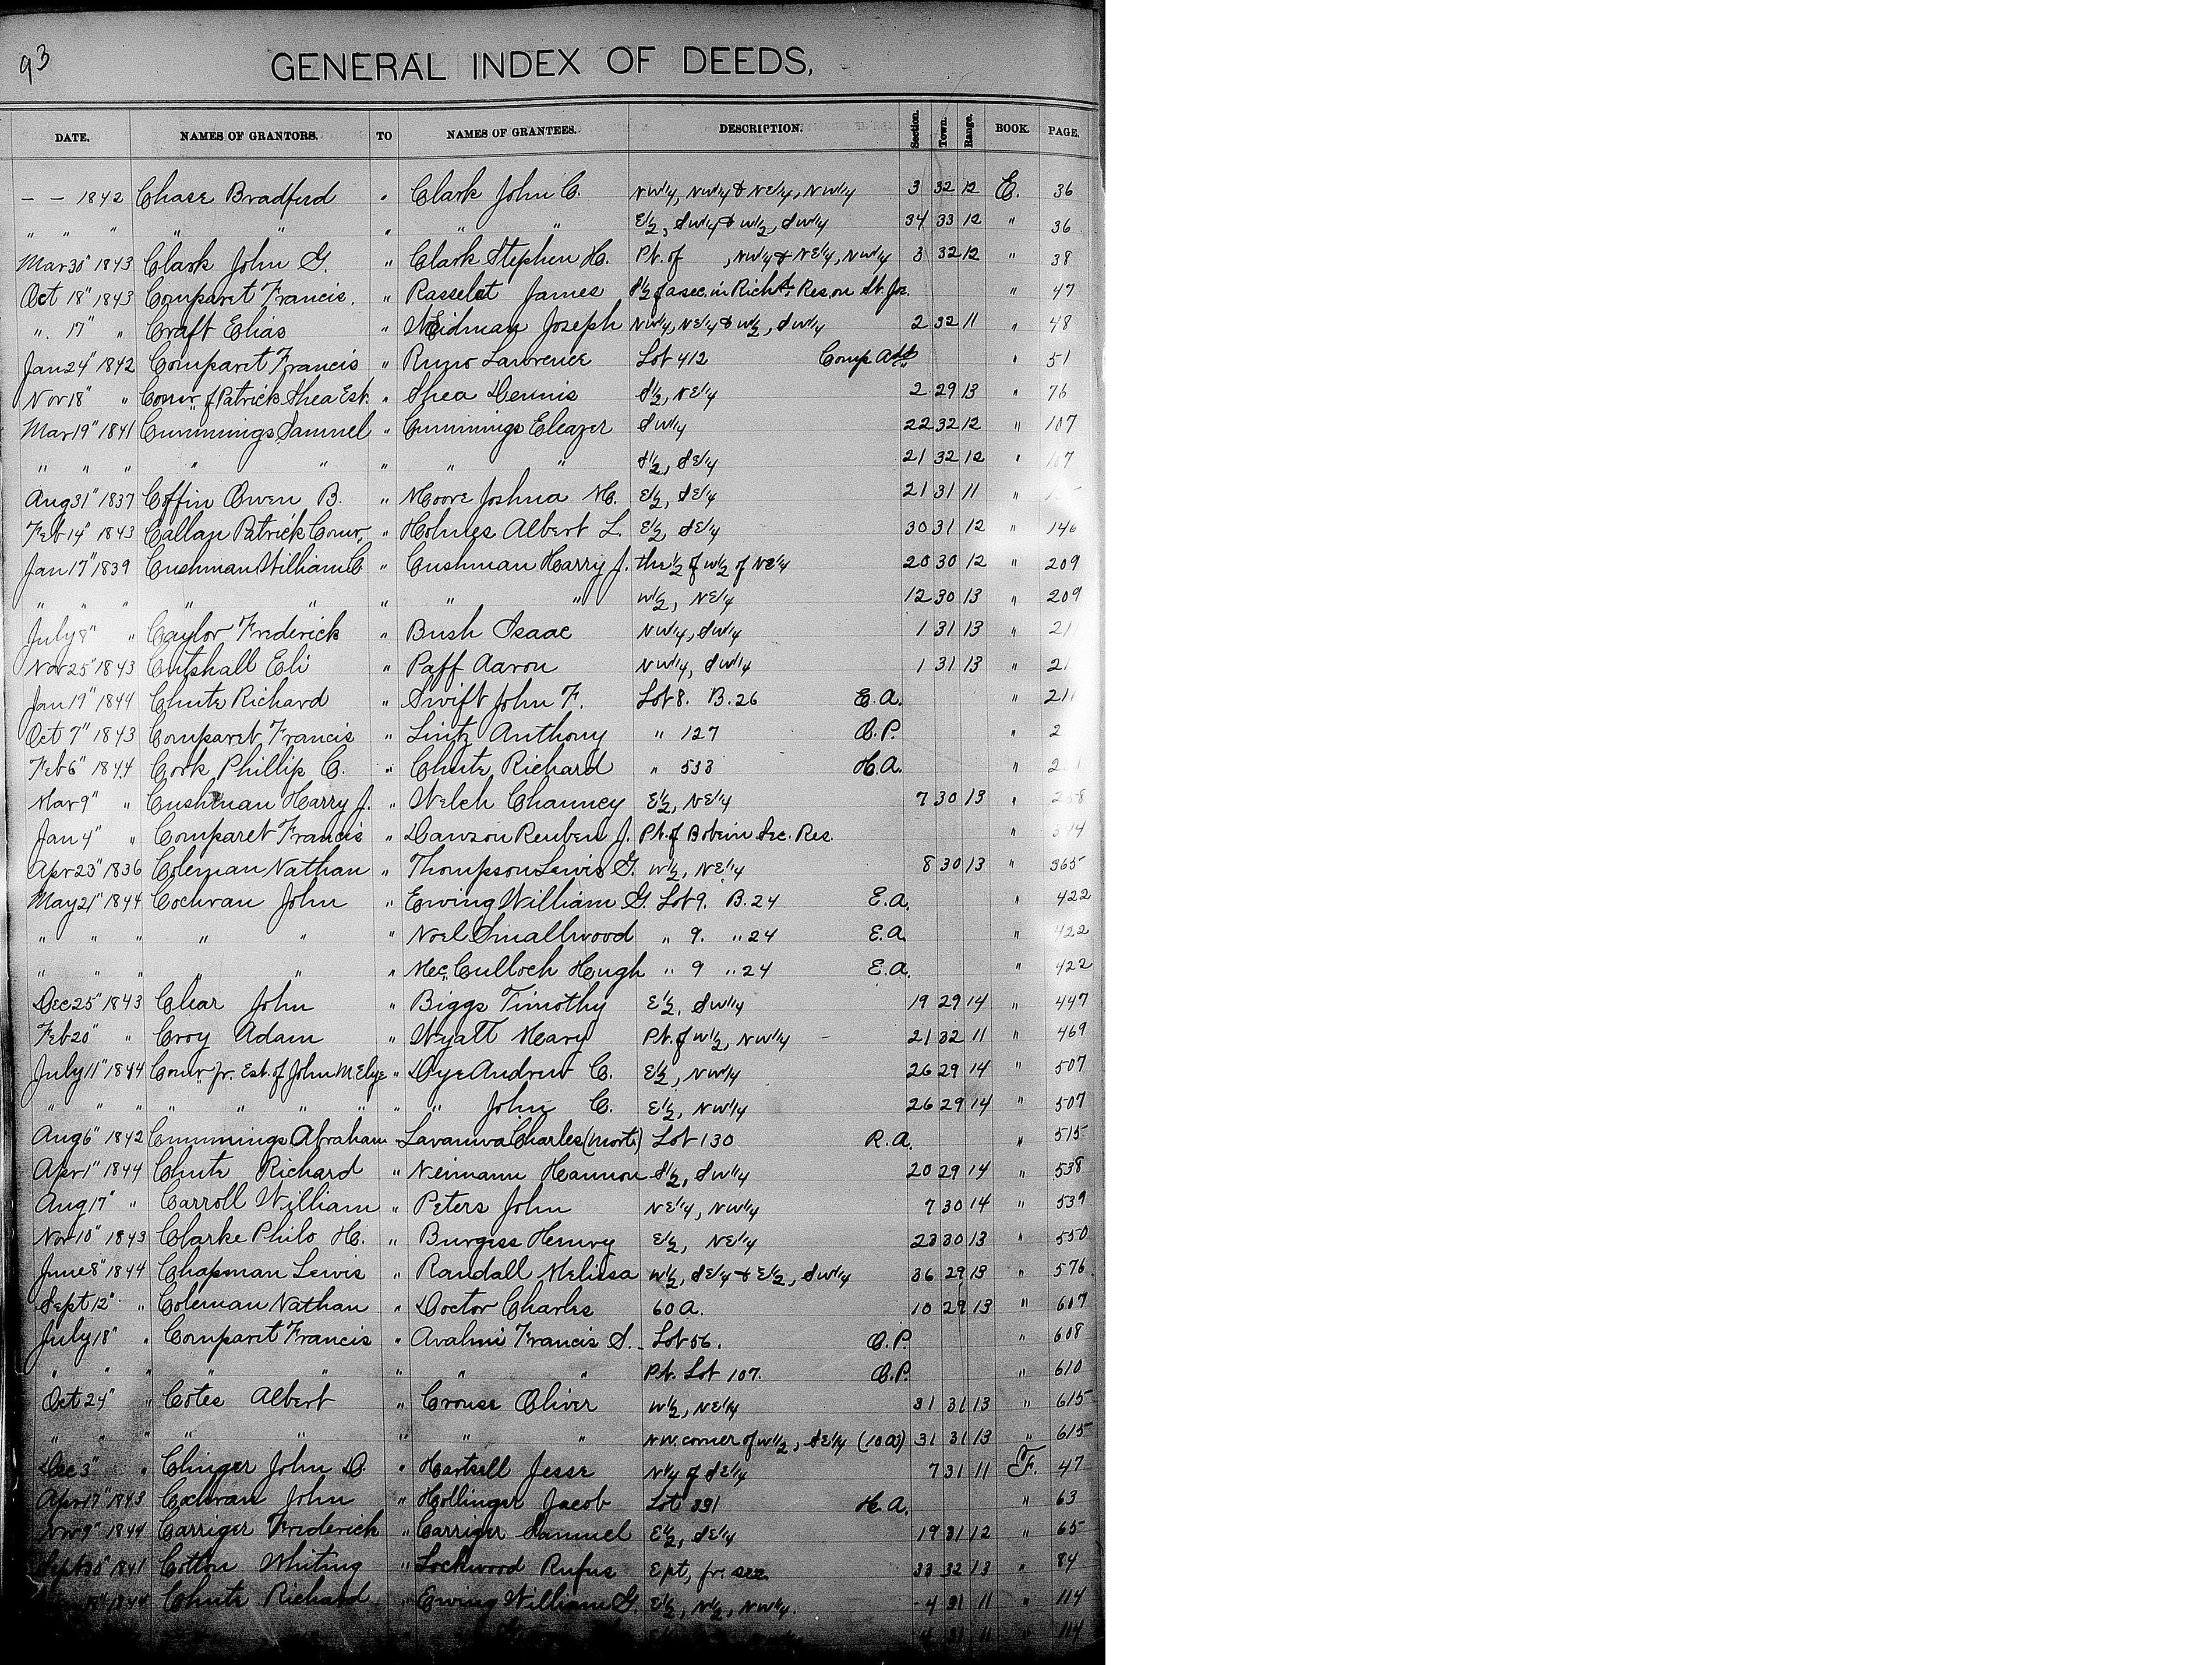 93
GENERAL INDEX OF DEEDS,
DATE. NAMES OF GRANTORS. TO NAMES OF GRANTEES. DESCRIPTION. Section. Town. Range. BOOK. PAGE.
– – 1842 Chase Bradford " Clark John C. NW1/4, NW1/4 & NE1/4, NW1/4 3 32 12 E. 36
" " " " " " " " E1/2, SW1/4 & W1/2, SW1/4 34 33 12 " 36
Mar 30" 1843 Clark John G. " Clark Stephen H. Pt. of , NW1/4 & NE1/4, NW1/4 3 32 12 " 38
Oct 18" 1843 Comparet Francis. " Rasselot James S1/2 of a sec. in Rich. Res. on St. Jos. " 47
" 17" " Craft Elias " Weidman Joseph NW1/4, NE1/4 & W1/2, SW1/4 2 32 11 " 48
Jan 24" 1842 Comparet Francis " Runo Lawrence Lot 412 Comp Add " 51
Nov 18" " Comr of Patrick Shea Est. " Shea Dennis S1/2, NE1/4 2 29 13 " 76
Mar 19" 1841 Cummings Samuel " Cummings Eleazer SW1/4 22 32 12 " 107
" " " " " " " " S1/2, SE1/4 21 32 12 " 107
Aug 31" 1837 Coffin Owen B. " Moore Joshua M. E1/2, SE1/4 21 31 11 "
Feb 14" 1843 Callan Patrick Comr. " Holmes Albert L. E1/2, SE1/4 30 31 12 " 146
Jan 17" 1839 Cushman William C " Cushman Harry J. the 1/2 of W1/2 of NE1/4 20 30 12 " 209
" " " " " " " " W1/2, NE1/4 12 30 13 " 209
July 8" " Caylor Frederick " Bush Isaac NW1/4, SW1/4 1 31 13 " 21
Nov 25" 1843 Cutshall Eli " Paff Aaron NW1/4, SW1/4 1 31 13 " 21
Jan 19" 1844 Chute Richard " Swift John F. Lot 8. B. 26 E.A. " 21
Oct 7" 1843 Comparet Francis " Lintz Anthony " 127 O.P. " 2
Feb 6" 1844 Cork Phillip C. " Chute Richard " 533 H.A. "
Mar 9" " Cushman Harry J. " Welch Chauncy E1/2, NE1/4 7 30 13 " 258
Jan 4" " Comparet Francis " Dawson Reuben J. Pt. of Bobein Sec. Res. " 344
Apr 23" 1836 Coleman Nathan " Thompson Lewis G. W1/2, NE1/4 8 30 13 " 365
May 21" 1844 Cochran John " Ewing William G. Lot 9. B. 24 E.A. " 422
" " " " " " Noel Smallwood " 9. " 24 E.A. " 422
" " " " " " McCulloch Hugh " 9 " 24 E.A. " 422
Dec 25" 1843 Clear John " Biggs Timothy E1/2, SW1/4 19 29 14 " 447
Feb 20" " Croy Adam " Wyatt Meary Pt. of W1/2, NW1/4 – 21 32 11 " 469
July 11" 1844 Comr fr. Est. of John M. Elye " Dye Andrew C. E1/2, NW1/4 26 29 14 " 507
" " " " " " " " " John C. E1/2, NW1/4 26 29 14 " 507
Aug 6" 1842 Cummings Abraham " Lavanwa Charles (Mort) Lot 130 R.A. " 515
Apr 1" 1844 Chute Richard " Neimann Hannon S1/2, SW1/4 20 29 14 " 538
Aug 17" " Carroll William " Peters John NE1/4, NW1/4 7 30 14 " 539
Nov 10" 1843 Clarke Philo H. " Burgess Henry E1/2, NE1/4 23 30 13 " 550
June 8" 1844 Chapman Lewis " Randall Melissa W1/2, SE1/4 & E1/2, SW1/4 36 29 13 " 576
Sept 12" " Coleman Nathan " Doctor Charles 60 A. 10 29 13 " 607
July 18" " Comparet Francis " Avaline Francis S. Lot 56. O.P. " 608
" " " " " " " " Pt. Lot 107. O.P. " 610
Oct 24" " Cotes Albert " Crouse Oliver W1/2, NE1/4 31 31 13 " 615
" " " " " " " " NW. corner of W1/2, SE1/4 (10 a) 31 31 13 " 615
Dec 3" " Clinger John D. " Hartsell Jesse N1/4 of SE1/4 7 31 11 F. 47
Apr 17" 1843 Cochran John " Hollinger Jacob Lot 391 H.A. " 63
Nov 9" 1844 Carriger Frederick " Carriger Samuel E1/2, SE1/4 19 31 12 " 65
Sept 30" 1841 Cotton Whiting " Lockwood Rufus E pt, fr. sec. 33 32 13 " 84
1844 Chute Richard " Ewing William G. E1/2, N1/2, NW1/4. 4 31 11 " 114
4 31 11 " 114